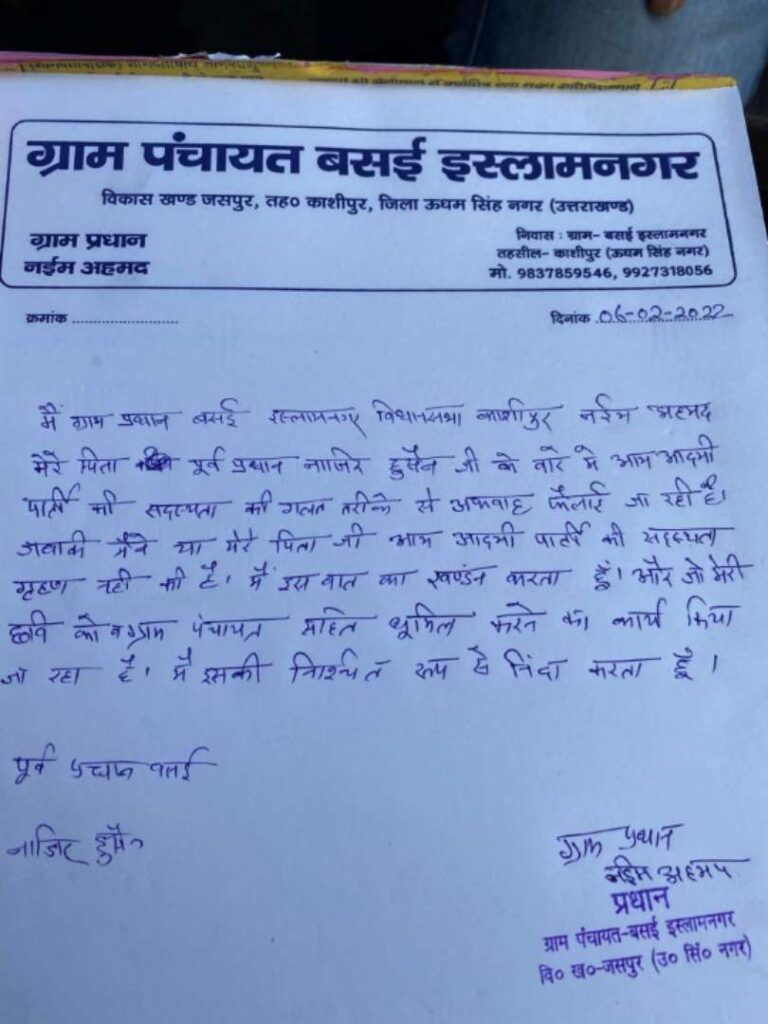 ग्राम पंचायत बसई इस्लामनगर
विकास खण्ड जसपुर, तह० काशीपुर, जिला ऊधम सिंह नगर (उत्तराखण्ड)
ग्राम प्रधान
नईम अहमद
निवास : ग्राम- बसई इस्लामनगर
तहसील- काशीपुर (ऊधम सिंह नगर)
मो. 9837859546, 9927318056
क्रमांक ........................
दिनांक 06-02-2022
मैं ग्राम प्रधान बसई इस्लामनगर विधानसभा काशीपुर नईम अहमद
मेरे पिता पूर्व प्रधान नाजिर हुसैन जी के बारे मे आम आदमी
पार्टी की सदस्यता की गलत तरीके से अफवाह फैलाई जा रही है।
जबकी मैंने या मेरे पिता जी आम आदमी पार्टी की सदस्यता
गृहण नही की है। मैं इस बात का खण्डन करता हूँ। और जो मेरी
छवि को व ग्राम पंचायत सहित धूमिल करने का कार्य किया
जा रहा है। मैं इसकी निश्चित रूप से निंदा करता हूँ।
पूर्व प्रधान बसई
नाजिर हुसैन
ग्राम प्रधान
नईम अहमद
प्रधान
ग्राम पंचायत-बसई इस्लामनगर
वि० ख०-जसपुर (उ० सिं० नगर)